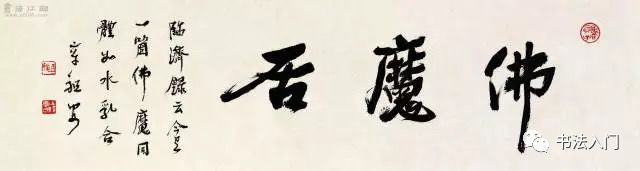 佛魔
臨濟錄云今有
一箇佛魔同
體如水乳合
書法江湖
书法入门